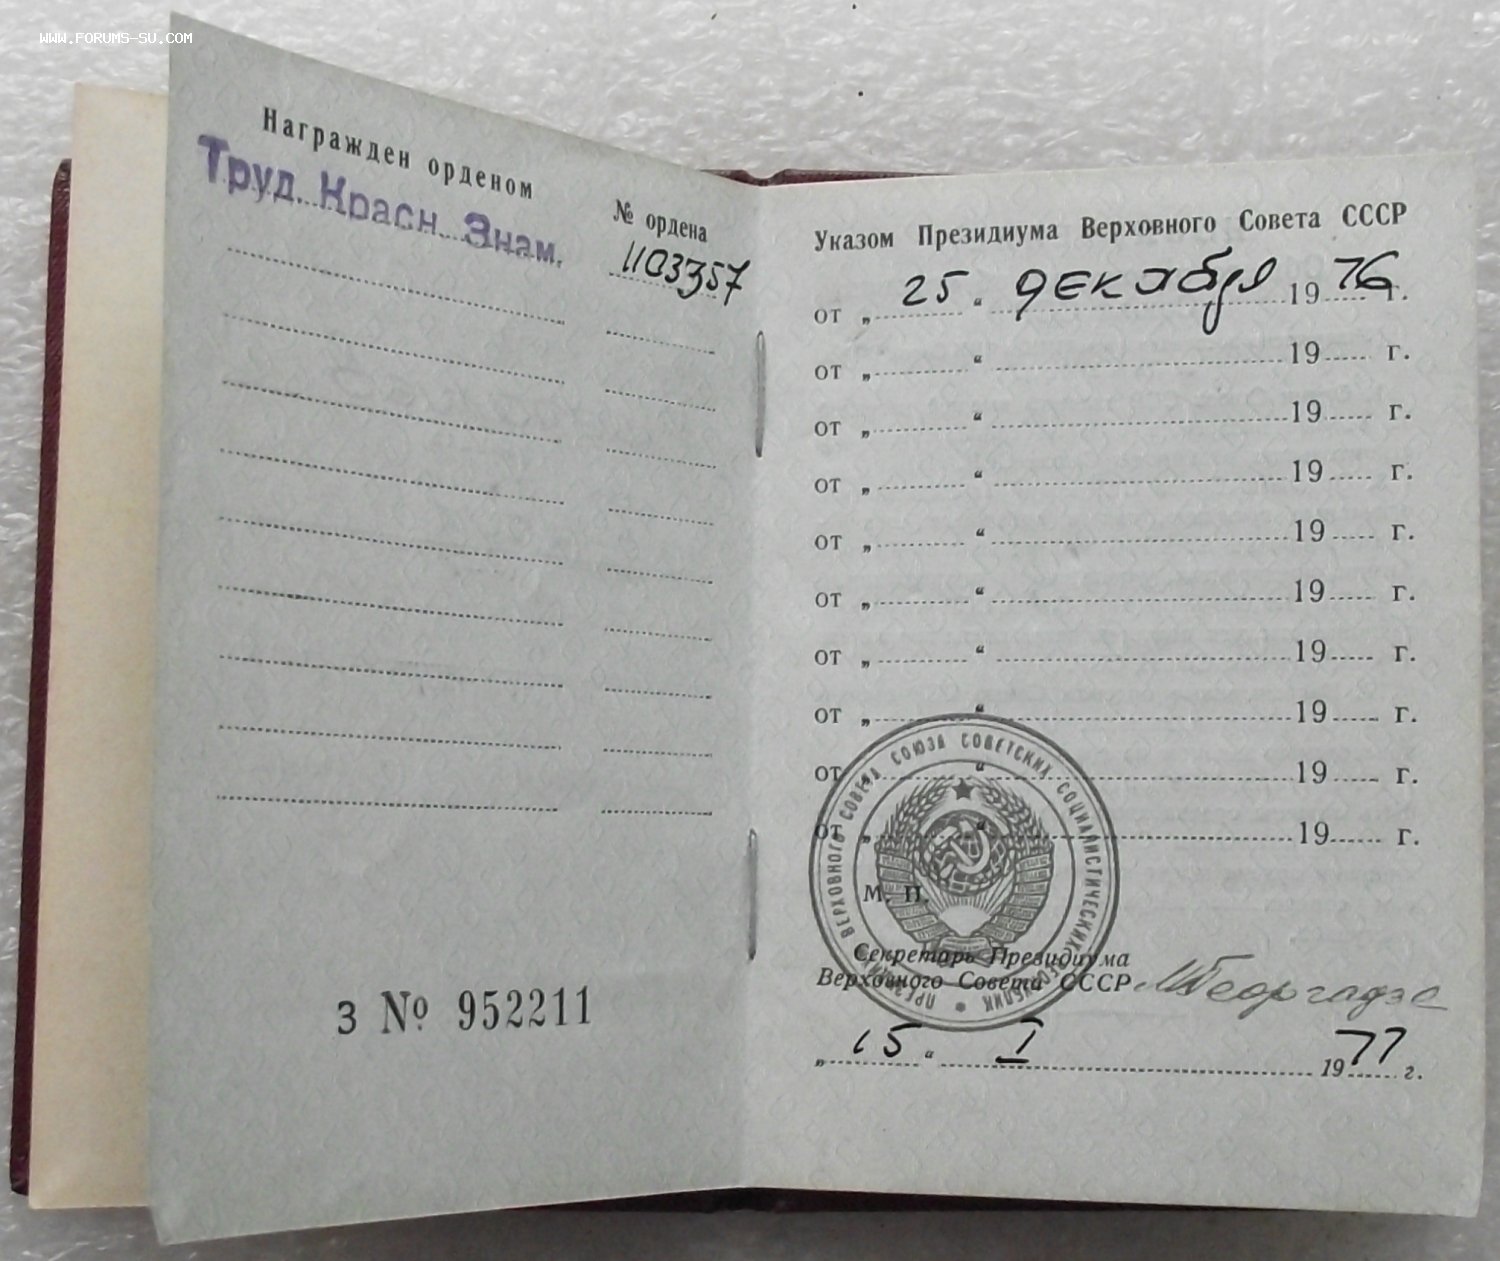 WWW.FORUMS-SU.COM
Награжден орденом
№ ордена
Труд. Красн. Знам.
1103357
З № 952211
Указом Президиума Верховного Совета СССР
от „ 25 “ декабря 1976 г.
от „ “ 19 г.
от „ “ 19 г.
от „ “ 19 г.
от „ “ 19 г.
от „ “ 19 г.
от „ “ 19 г.
от „ “ 19 г.
от „ “ 19 г.
от „ “ 19 г.
ПРЕЗИДИУМ ВЕРХОВНОГО СОВЕТА СОЮЗА СОВЕТСКИХ СОЦИАЛИСТИЧЕСКИХ РЕСПУБЛИК
М. П.
Секретарь Президиума
Верховного Совета СССР МГеоргадзе
„ 15 “ I 1977 г.